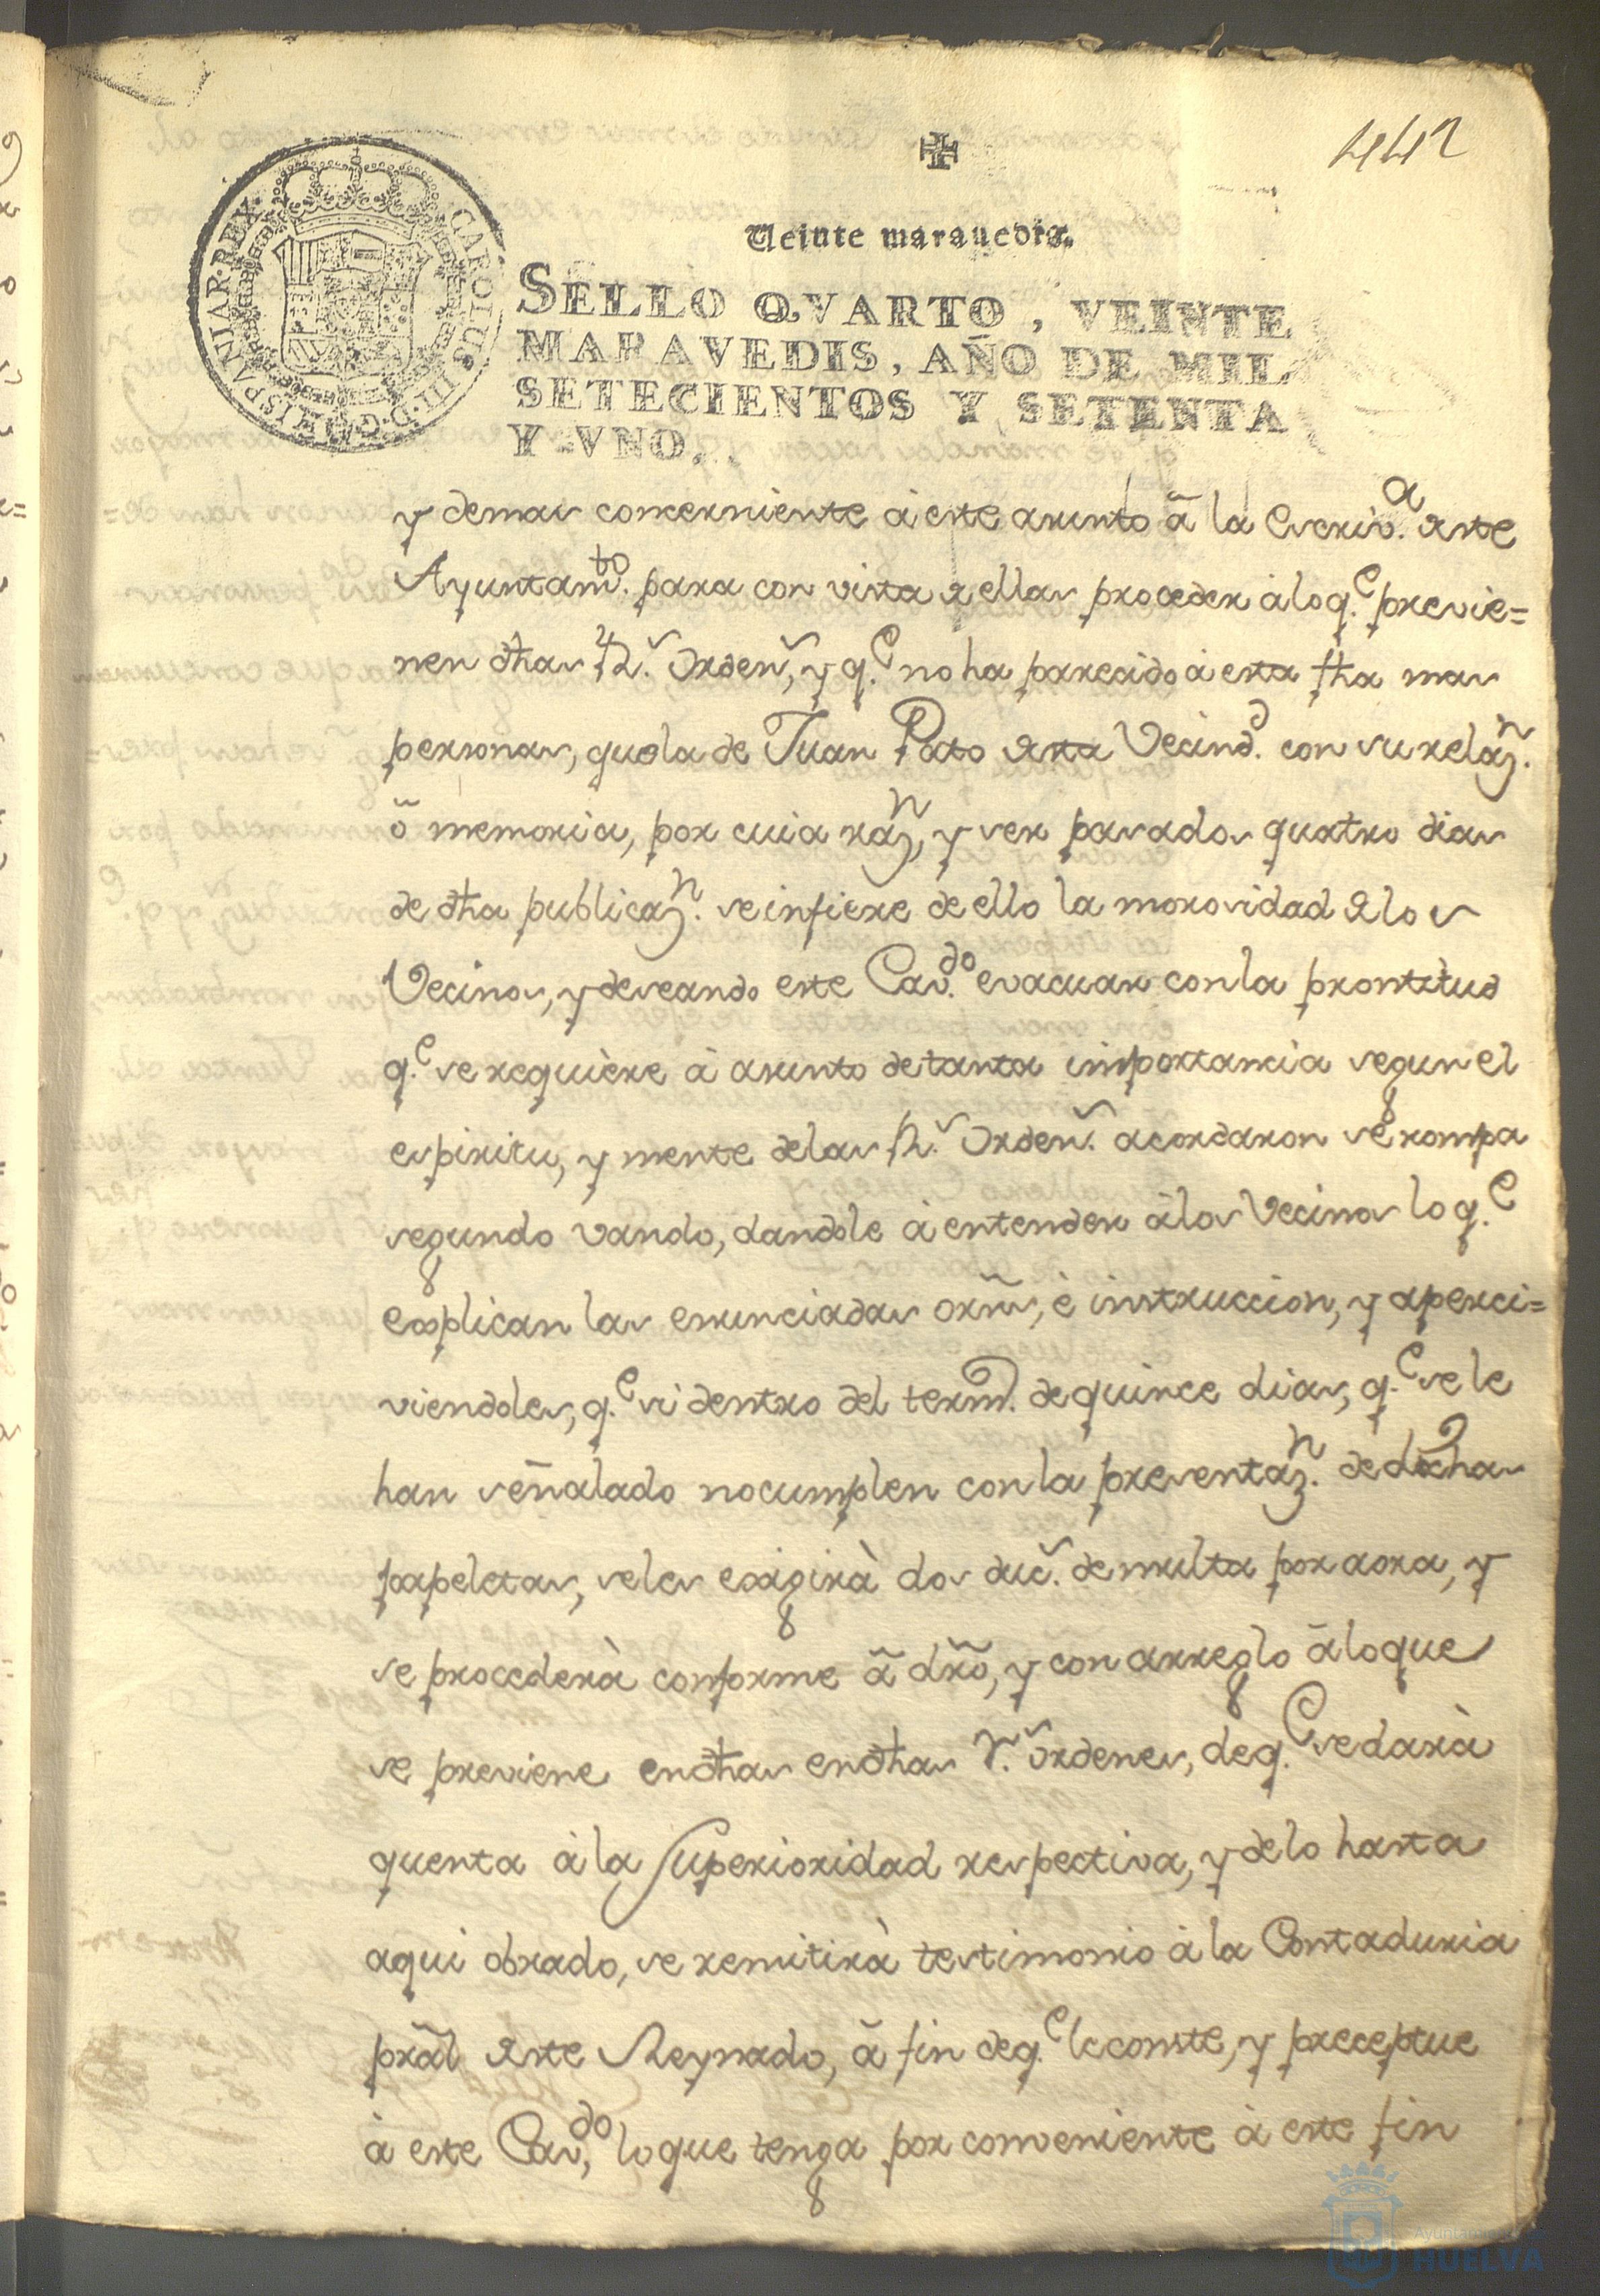 442
Veinte marauedis.
CAROLUS III D. G. HISPANIAR. REX
SELLO QVARTO, VEINTE
MARAVEDIS, AÑO DE MIL
SETECIENTOS Y SETENTA
Y VNO.
y demas concerniente à este asunto â la Escriv.ª deste
Ayuntam.to para con vista de ellas proceder àlo q.e previe=
nen dhas R.s Orden.s, y q.e no ha parecido à esta fha mas
personas, que la de Juan Pato desta Vecind.d con su relaz.n
ô memoria, por cuia raz.n, y ser pasados quatro dias
de dha publicaz.n se infiere de ello la morosidad delos
Vecinos, y deseando este Cav.do evacuar con la prontitud
q.e se requière à asunto de tanta importancia segun el
espiritu, y mente delas R.s Orden.s acordaron se rompa
segundo vando, dandole à entender àlos Vecinos lo q.e
explican las enunciadas orñs, è instruccion, y aperci=
viendoles, q.e si dentro del term.o de quince dias, q.e se le
han señalado no cumplen con la presentaz.n de dichas
papeletas, seles exigirà dos duc.s de multa por aora, y
se procederà conforme â drõ, y con arreglo â lo que
se previene en dhas en dhas r.s ordenes, de q.e se darà
quenta à la Superioridad respectiva, y de lo hasta
aqui obrado, se remitirà testimonio à la Contaduria
prâl deste Reynado, â fin de q.e le conste, y preceptue
à este Cav.do, lo que tenga por conveniente à este fin
Ayuntamiento
HUELVA